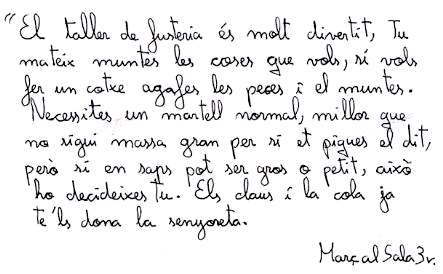 "El taller de fusteria és molt divertit, Tu
mateix muntes les coses que vols, si vols
fer un cotxe agafes les peces i el muntes.
Necessites un martell normal, millor que
no sigui massa gran per si et piques el dit,
però si en saps pot ser gros o petit, això
ho decideixes tu. Els claus i la cola ja
te'ls dona la senyoreta.
Marçal Sala 3r.